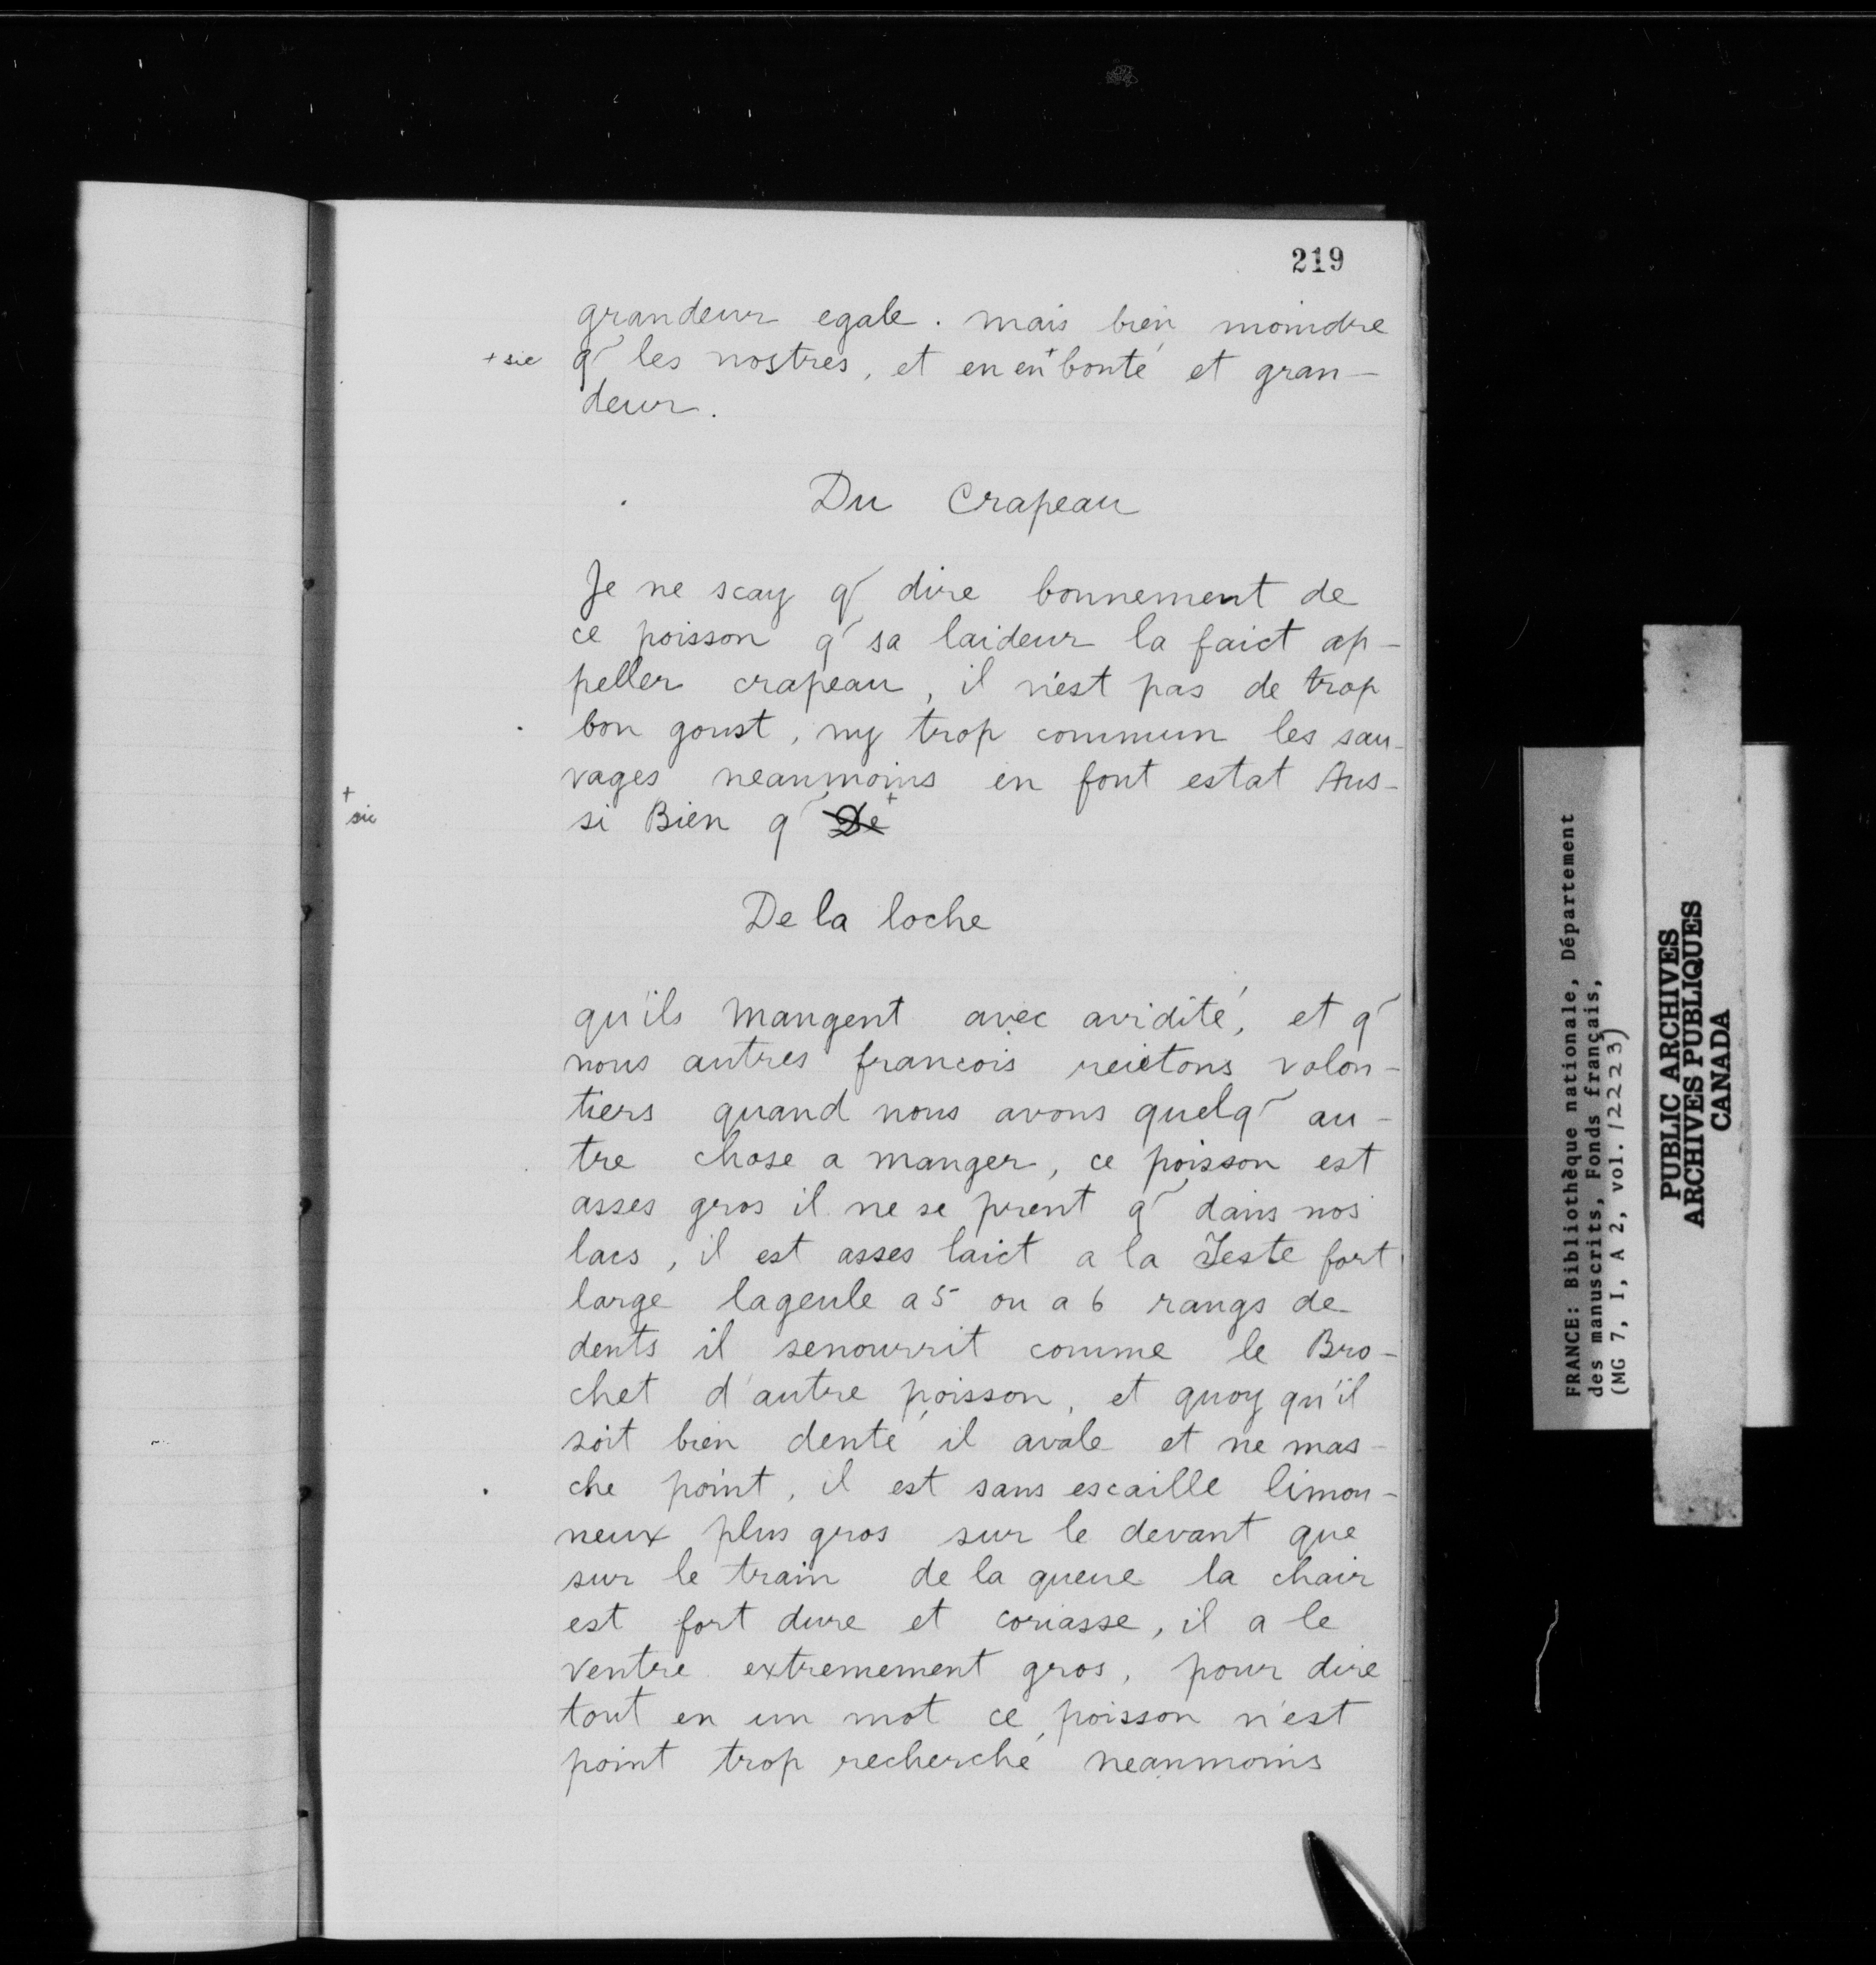 219
grandeur egale. mais bien moindre
+ sic q̃ les nostres, et en en+ bonté et gran-
deur.
Du Crapeau
Je ne scay q̃ dire bonnement de
ce poisson q̃ sa laideur la faict ap-
peller crapeau, il n'est pas de trop
bon goust, ny trop commun les sau-
vages neanmoins en font estat Aus-
+ sic si Bien q̃ De+
De la loche
qu'ils mangent avec avidité, et q̃
nous autres francois reietons volon-
tiers quand nous avons quelq̃ au-
tre chose a manger, ce poisson est
asses gros il ne se prent q̃ dans nos
lacs, il est asses laict a la Teste fort
large lageule a 5 ou a 6 rangs de
dents il senourrit comme le Bro-
chet d'autre poisson, et quoy qu'il
soit bien denté il avale et ne mas-
che point, il est sans escaille limon-
neux plus gros sur le devant que
sur le train de la queue la chair
est fort dure et coriasse, il a le
ventre extremement gros, pour dire
tout en un mot ce poisson n'est
point trop recherché neanmoins
FRANCE: Bibliothèque nationale, Département
des manuscrits, Fonds français,
(MG 7, I, A 2, vol. 12223)
PUBLIC ARCHIVES
ARCHIVES PUBLIQUES
CANADA